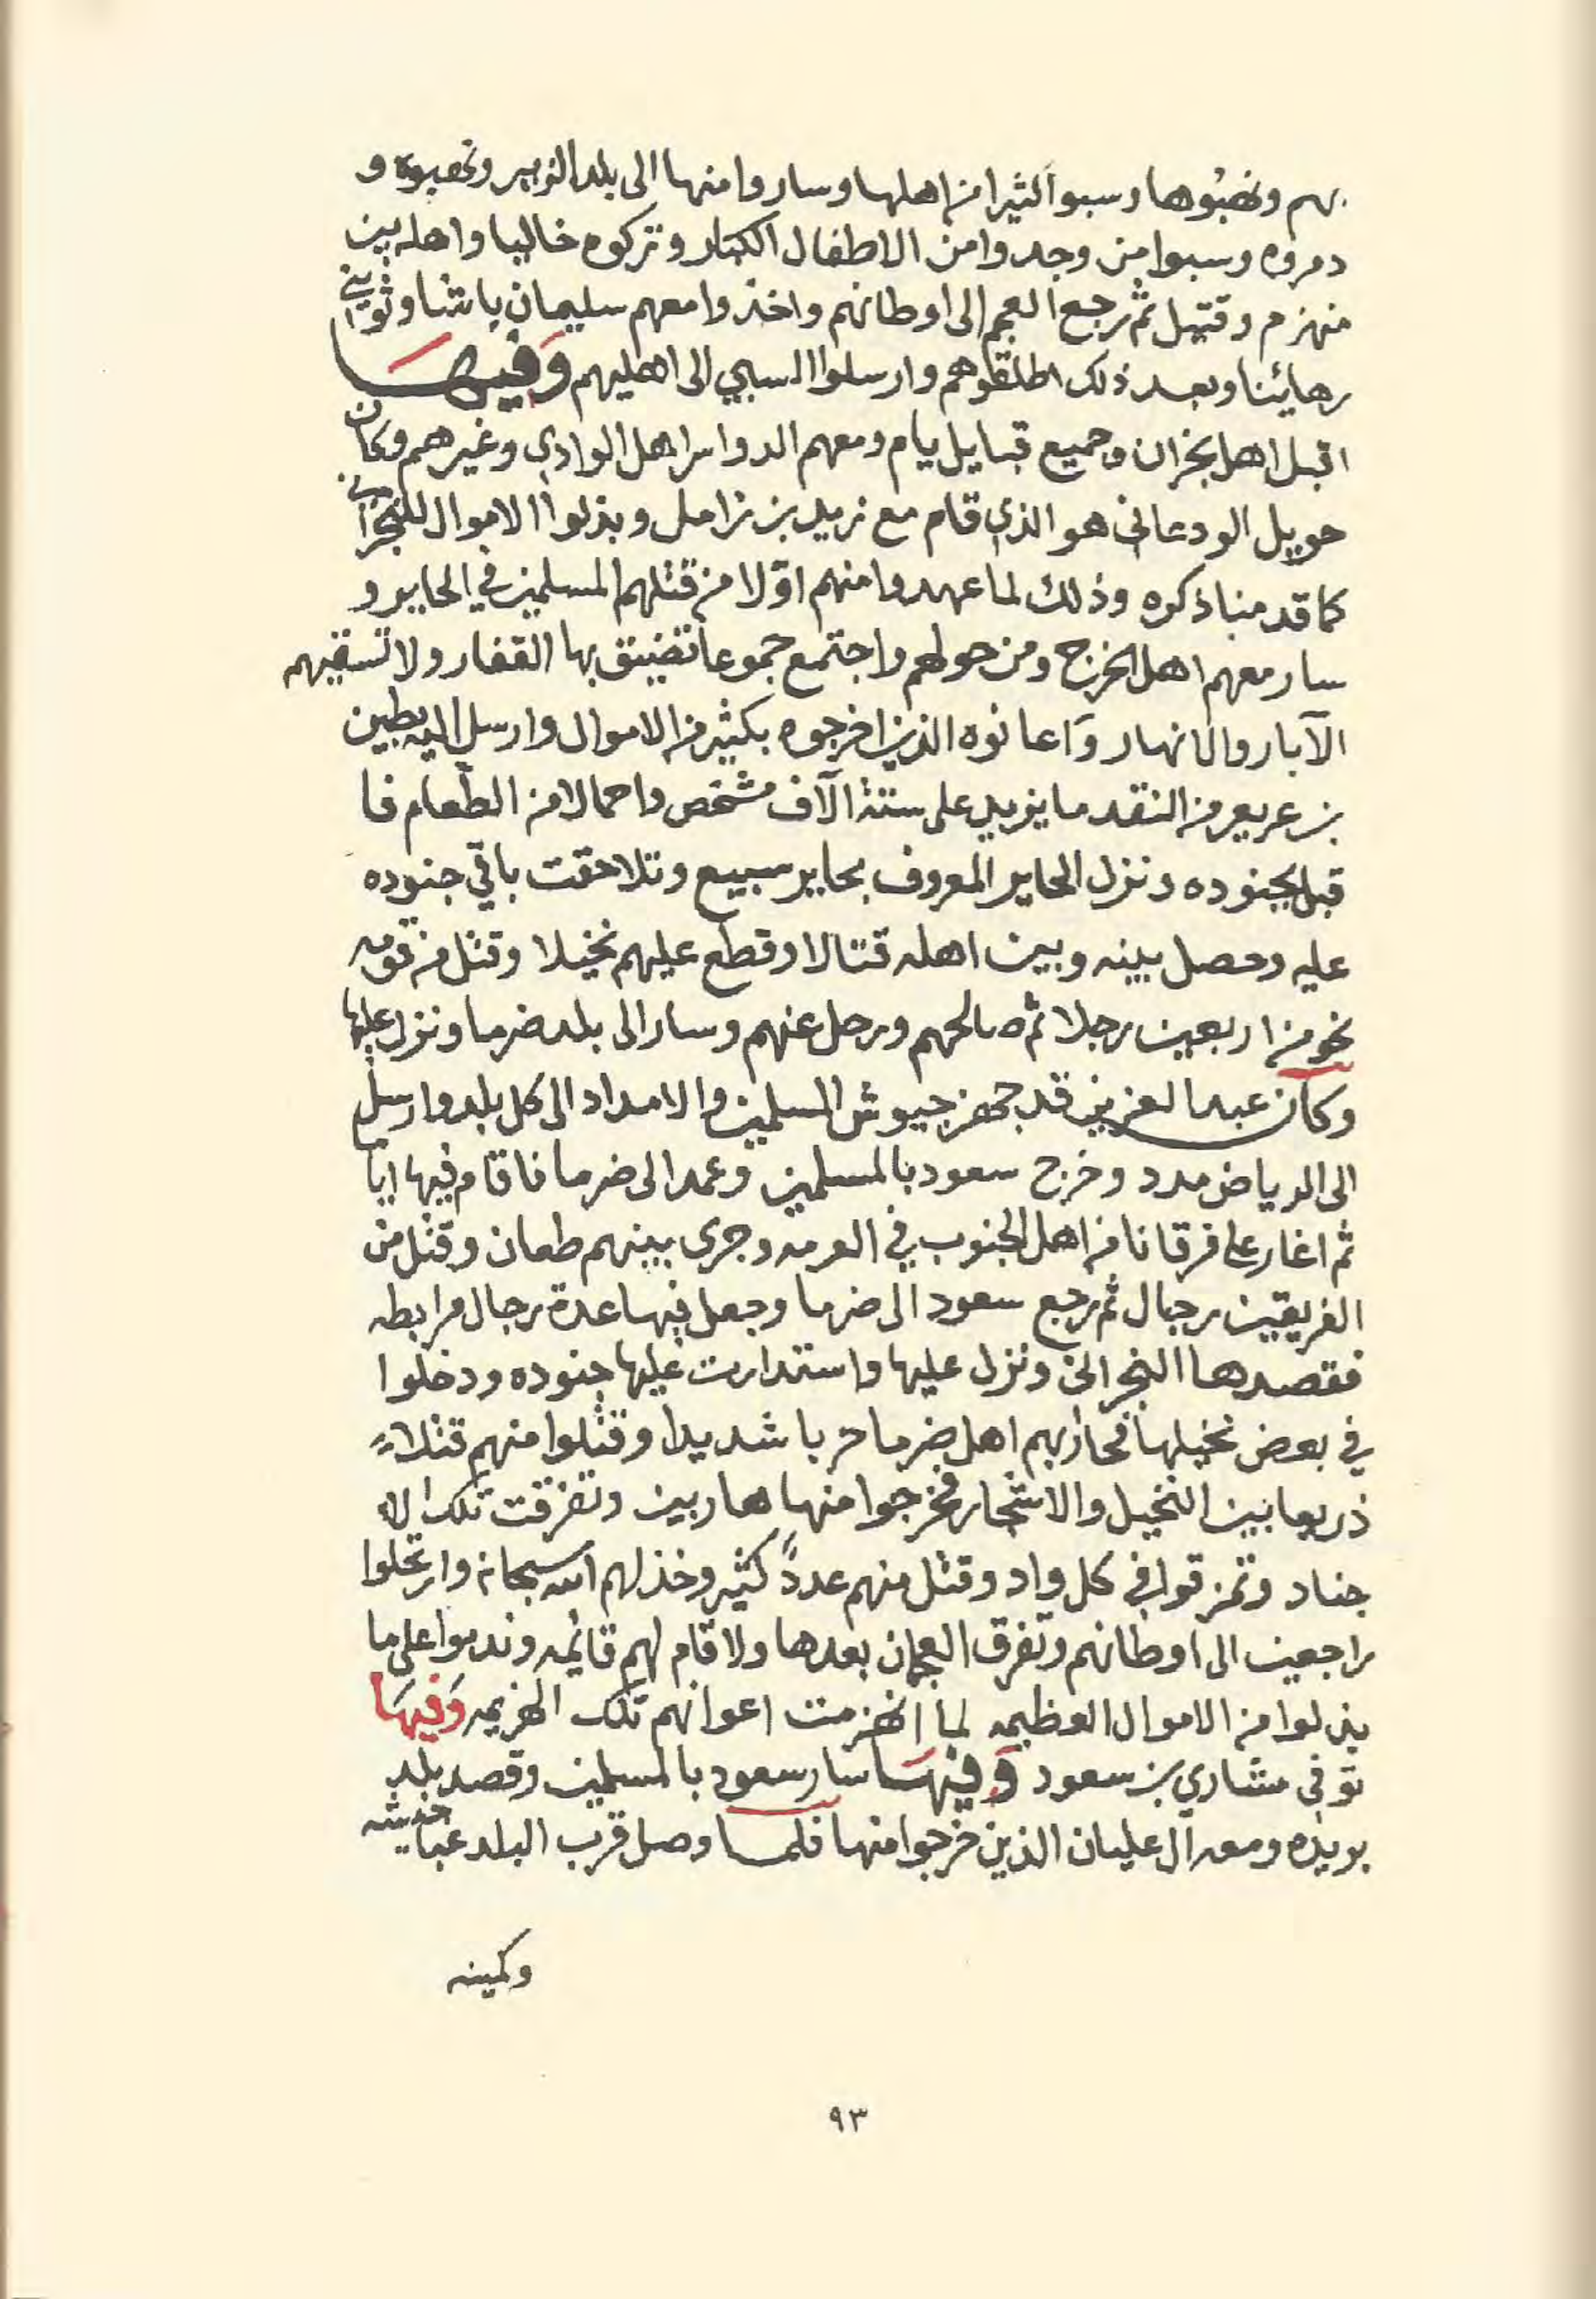 بهم ونهبوها وسبوا كثيرا من اهلها وساروا منها الى بلد الزبير ونهبوه و
دمروه وسبوا من وجدوا من الاطفال الكبار وتركوه خاليا واهله بين
منهزم وقتيل ثم رجع العجم الى اوطانهم واخذوا معهم سليمان باشا وثويني
رهائنا وبعد ذلك اطلقوهم وارسلوا السبي الى اهليهم وَفيهَا
اقبل اهل نجران وجميع قبايل يام ومعهم الدواسر اهل الوادي وغيرهم وكان
حويل الودعاني هو الذي قام مع زيد بن زامل وبذلوا الاموال للنجراني
كما قدمنا ذكره وذلك لما عهدوا منهم اوّلا من قتلهم المسلمين في الحاير و
سار معهم اهل الخرج ومن حولهم واجتمع جموعا تضيق بها القفار ولا تسقيهم
الآبار والانهار وَاعانوه الذين اخرجوه بكثير من الاموال وارسل اليه بطين
بن عريعر من النقد ما يزيد على ستة الآف مشخص واحمالا من الطعام فا
قبل بجنوده ونزل الحاير المعروف بحاير سبيع وتلاحقت باقي جنوده
عليه وحصل بينه وبين اهله قتالا وقطع عليهم نخيلا وقتل من قومه
نحو من اربعين رجلا ثم صالحهم ورحل عنهم وسار الى بلد ضرما ونزل عليها
وكان عبد العزيز قد جهز جيوش المسلمين والامداد الى كل بلد وارسل
الى الرياض مدد وخرج سعود بالمسلمين وعمد الى ضرما فاقام فيها ايا
ثم اغار على فرقانا من اهل الجنوب في العرمه وجرى بينهم طعان وقتل من
الفريقين رجال ثم رجع سعود الى ضرما وجعل فيها عدة رجال مرابطه
فقصدها النجراني ونزل عليها واستدارت عليها جنوده ودخلوا
في بعض نخيلها فحاربهم اهل ضرما حربا شديدا وقتلوا منهم قتلاً
ذريعا بين النخيل والاشجار فخرجوا منها هاربين وتفرقت تلك الا
جناد وتمزقوا في كل واد وقتل منهم عددً كثير وخذلهم الله سبحانه وارتحلوا
راجعين الى اوطانهم وتفرق العجمان بعدها ولا قام لهم قائمه وندموا على ما
بذلوا من الاموال العظيمه لما انهزمت اعوانهم تلك الهزيمه وَفيهَا
توفي مشاري بن سعود وَفيهَا سار سعود بالمسلمين وقصد بلد
بريده ومعه ال عليان الذين خرجوا منها فلما وصل قرب البلد عبا جيشه
وكمينه
٩٣